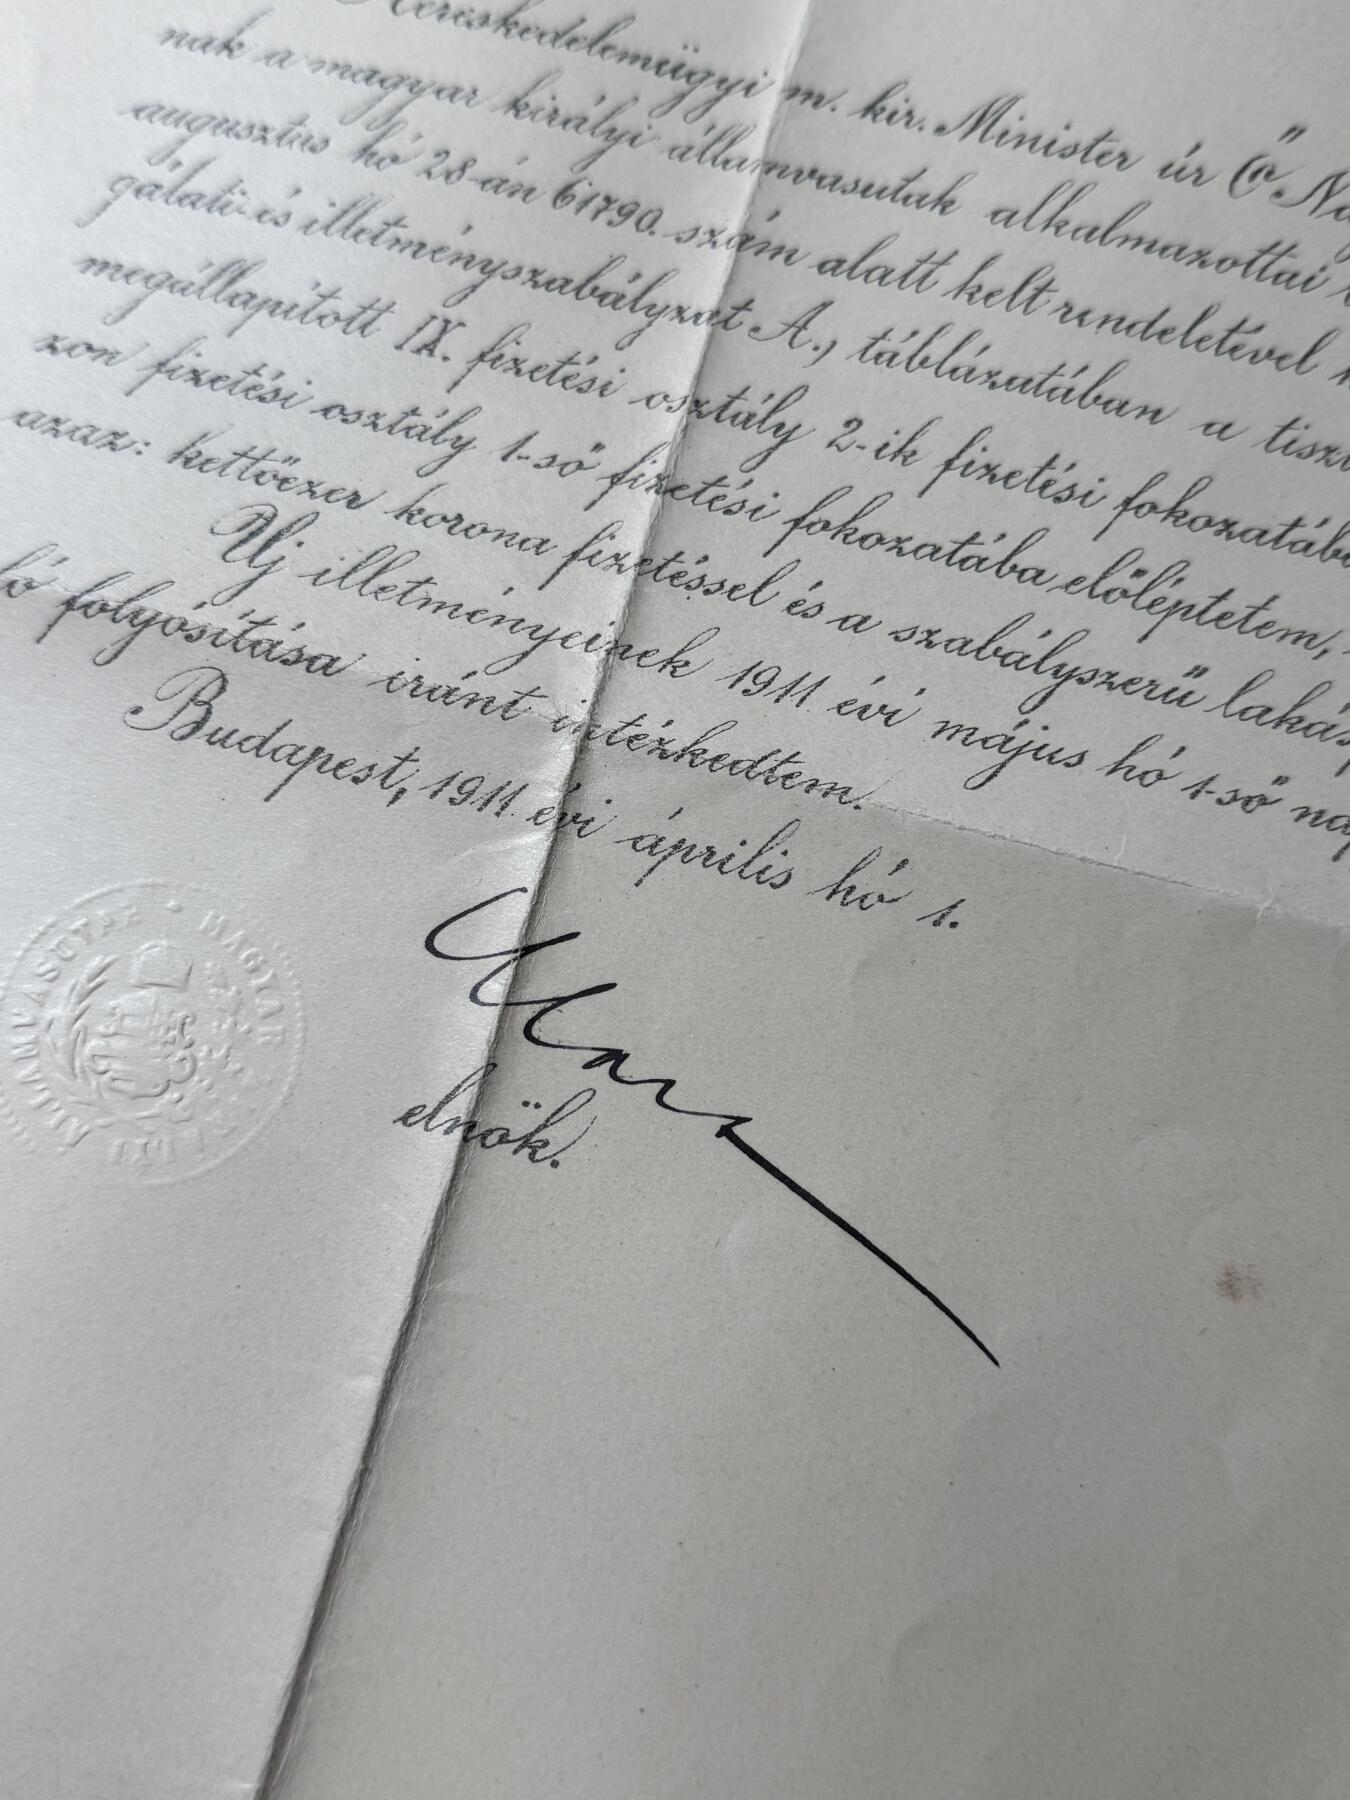 Kereskedelemügyi m. kir. Minister úr Ő
nak a magyar királyi államvasutak alkalmazottai
augusztus hó 28-án 61790. szám alatt kelt rendeletével
gálati- és illetményszabályzat A., táblázatában a
megállapított IX. fizetési osztály 2-ik fizetési
zon fizetési osztály 1-ső fizetési fokozatába előléptetem,
azaz: kettőezer korona fizetéssel és a szabályszerű
Uj illetményeinek 1911 évi május hó 1-ső
ló folyósitása iránt intézkedtem.
Budapest, 1911. évi április hó 1.
elnök.
MAGYAR
ÁLLAMVASUTAK